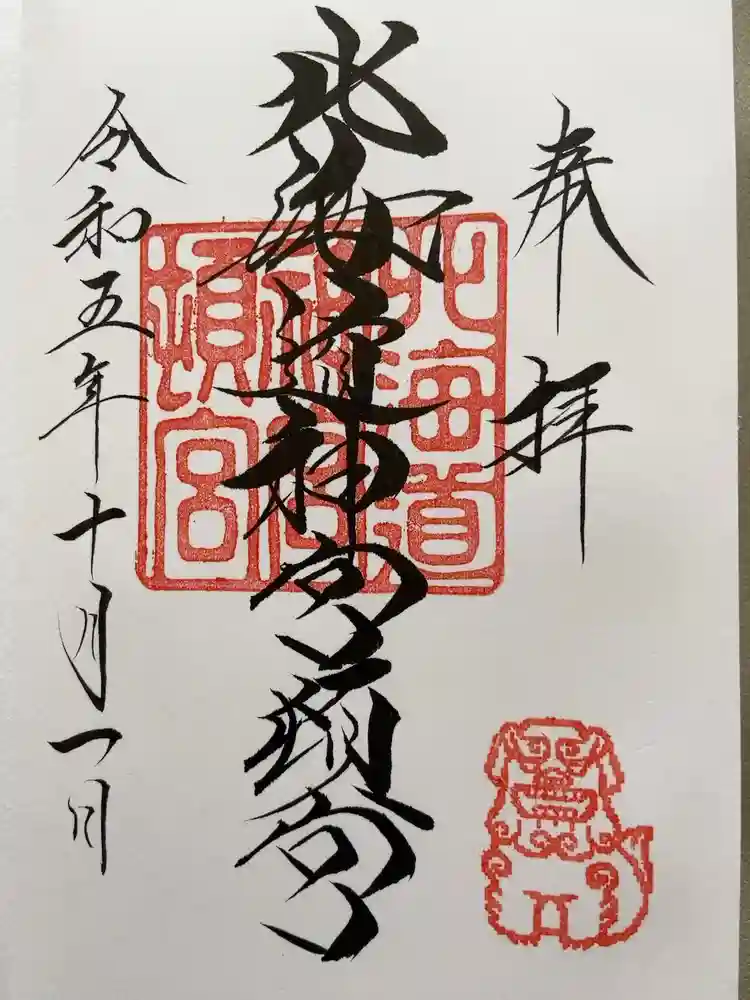 奉拝
北海道神宮頓宮
北海道
神宮
頓宮
令和五年十月一日